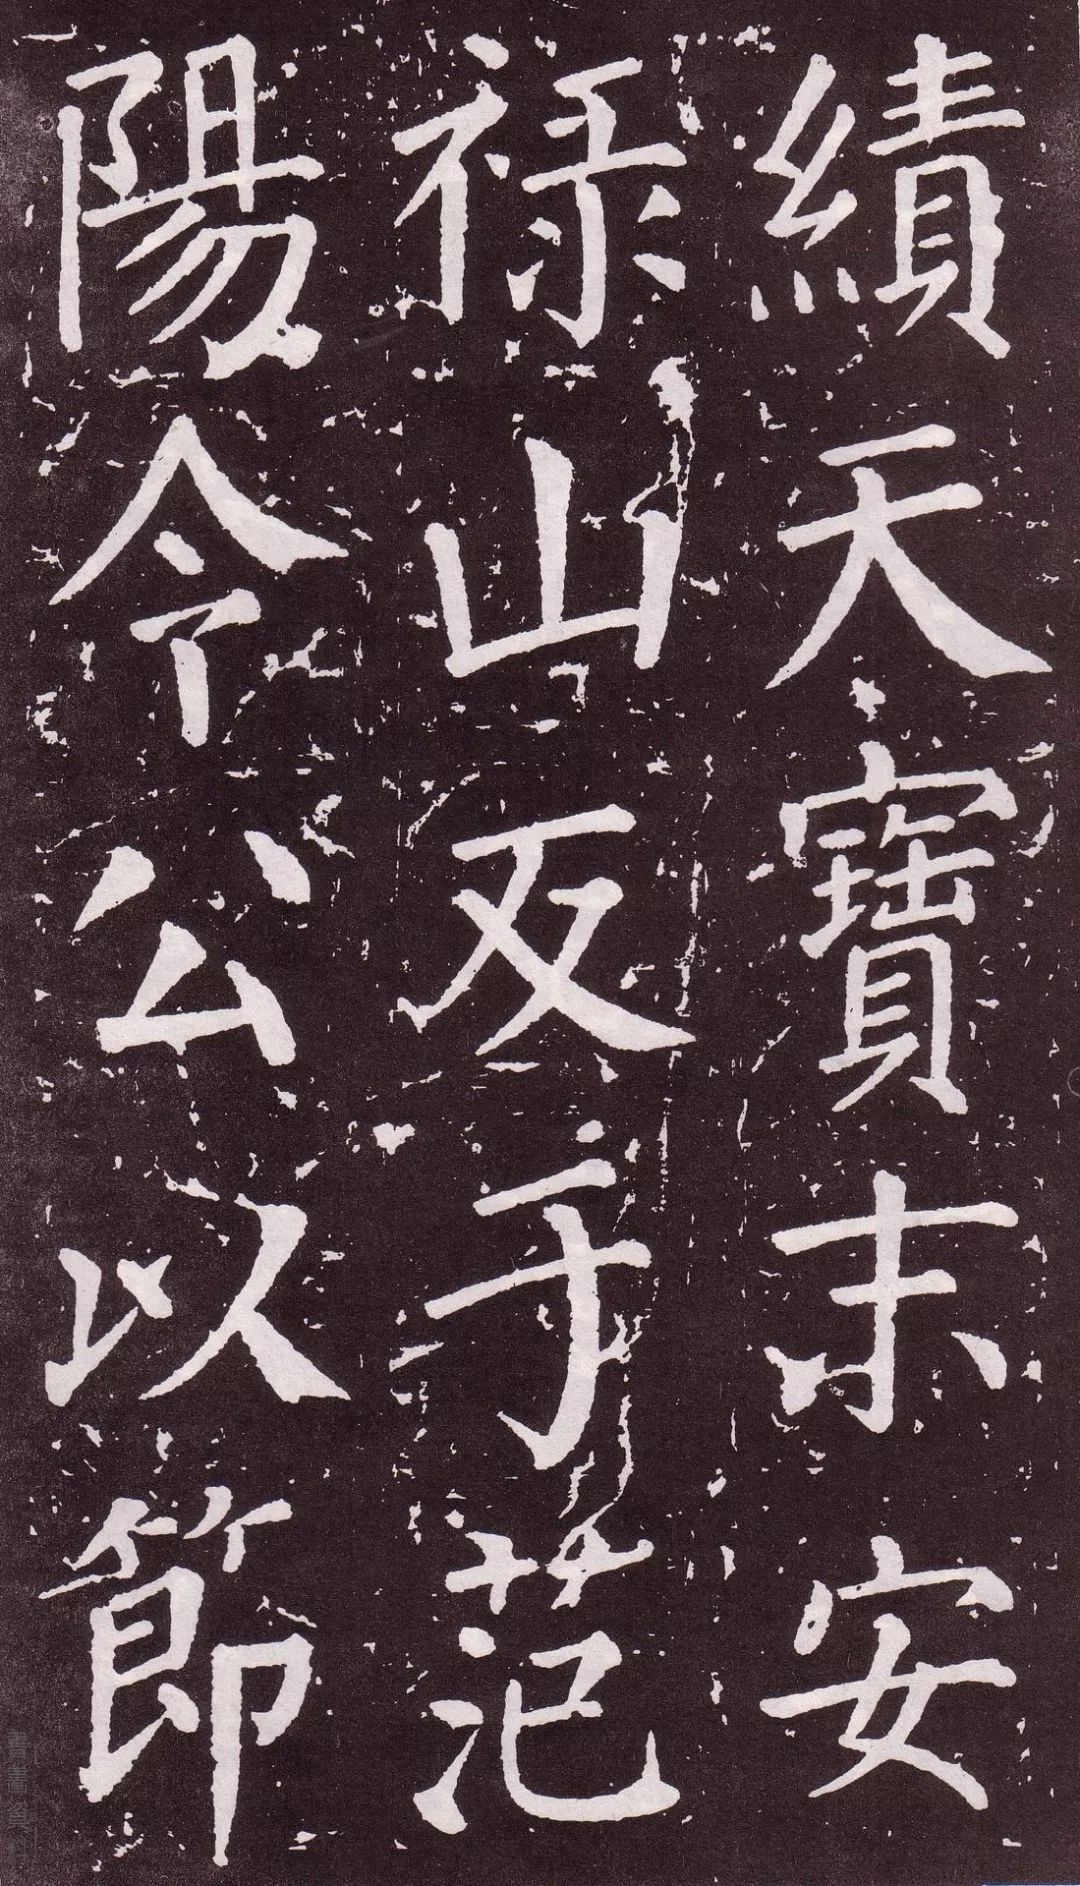 績天寶末安
祿山反于范
陽令公以節